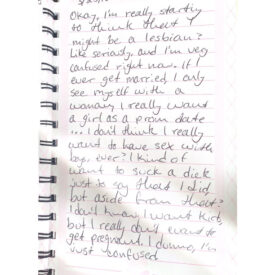 Okay, I'm really starting
to think that I
might be a lesbian?
Like seriously, and I'm very
confused right now. If I
ever get married, I only
see myself with a
woman, I really want
a girl as a prom date
... I don't think I really
want to have sex with
boys, ever? I kind of
want to suck a dick
just to say that I did
but aside from that?
I don't know, I want kids,
but I really don't want to
get pregnant. I dunno, I'm
just confused